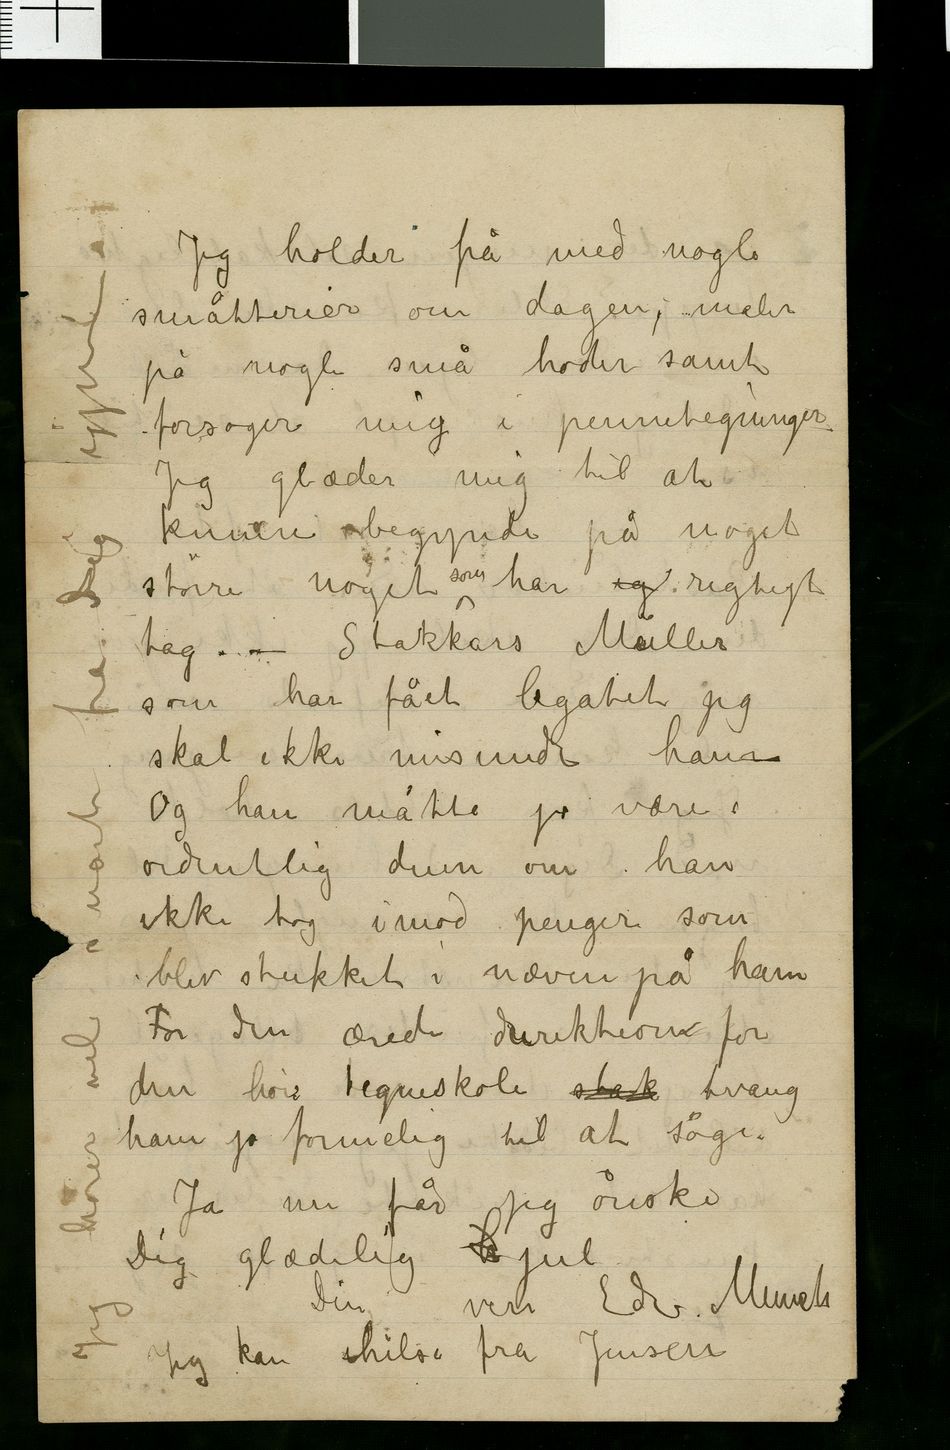 Jeg holder på med nogle
småtterier om dagen; maler
på nogle små hoder samt
forsøger mig i pennetegninger.
Jeg glæder mig til at
kunne begynde på noget
större noget som har rigtigt
tag. — Stakkars Müller
som har fået legatet jeg
skal ikke misunde ham
Og han måtte jo være
ordentlig dum om han
ikke tog imod penger som
blev stukket i næven på ham
For den ærede direktion for
den høie tegneskole stak tvang
ham jo formelig til at söge.
Ja nu får jeg önske
Dig glædelig jul
Din ven Edv. Munch
Jeg kan hilse fra Jensen
Jeg hører vel snart fra Dig